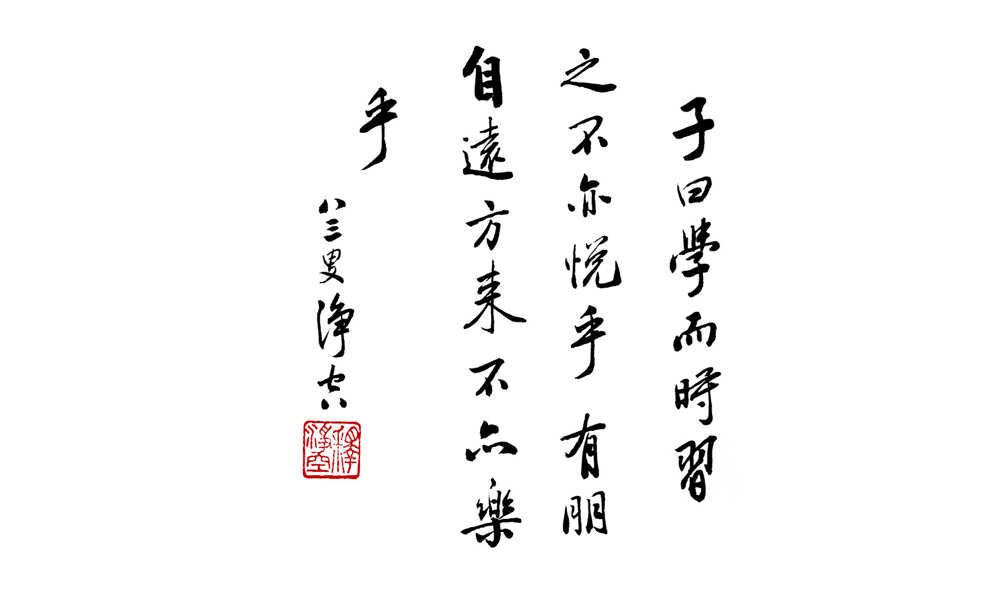 子曰學而時習
之不亦悅乎有朋
自遠方来不亦樂
乎
八三叟淨空
釋淨空